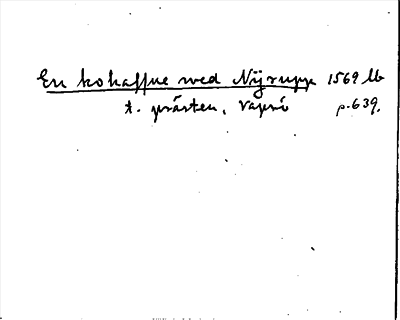 En kohaffue wed Nÿrupp 1569 lb
t. prästen, Vapnö p. 639.